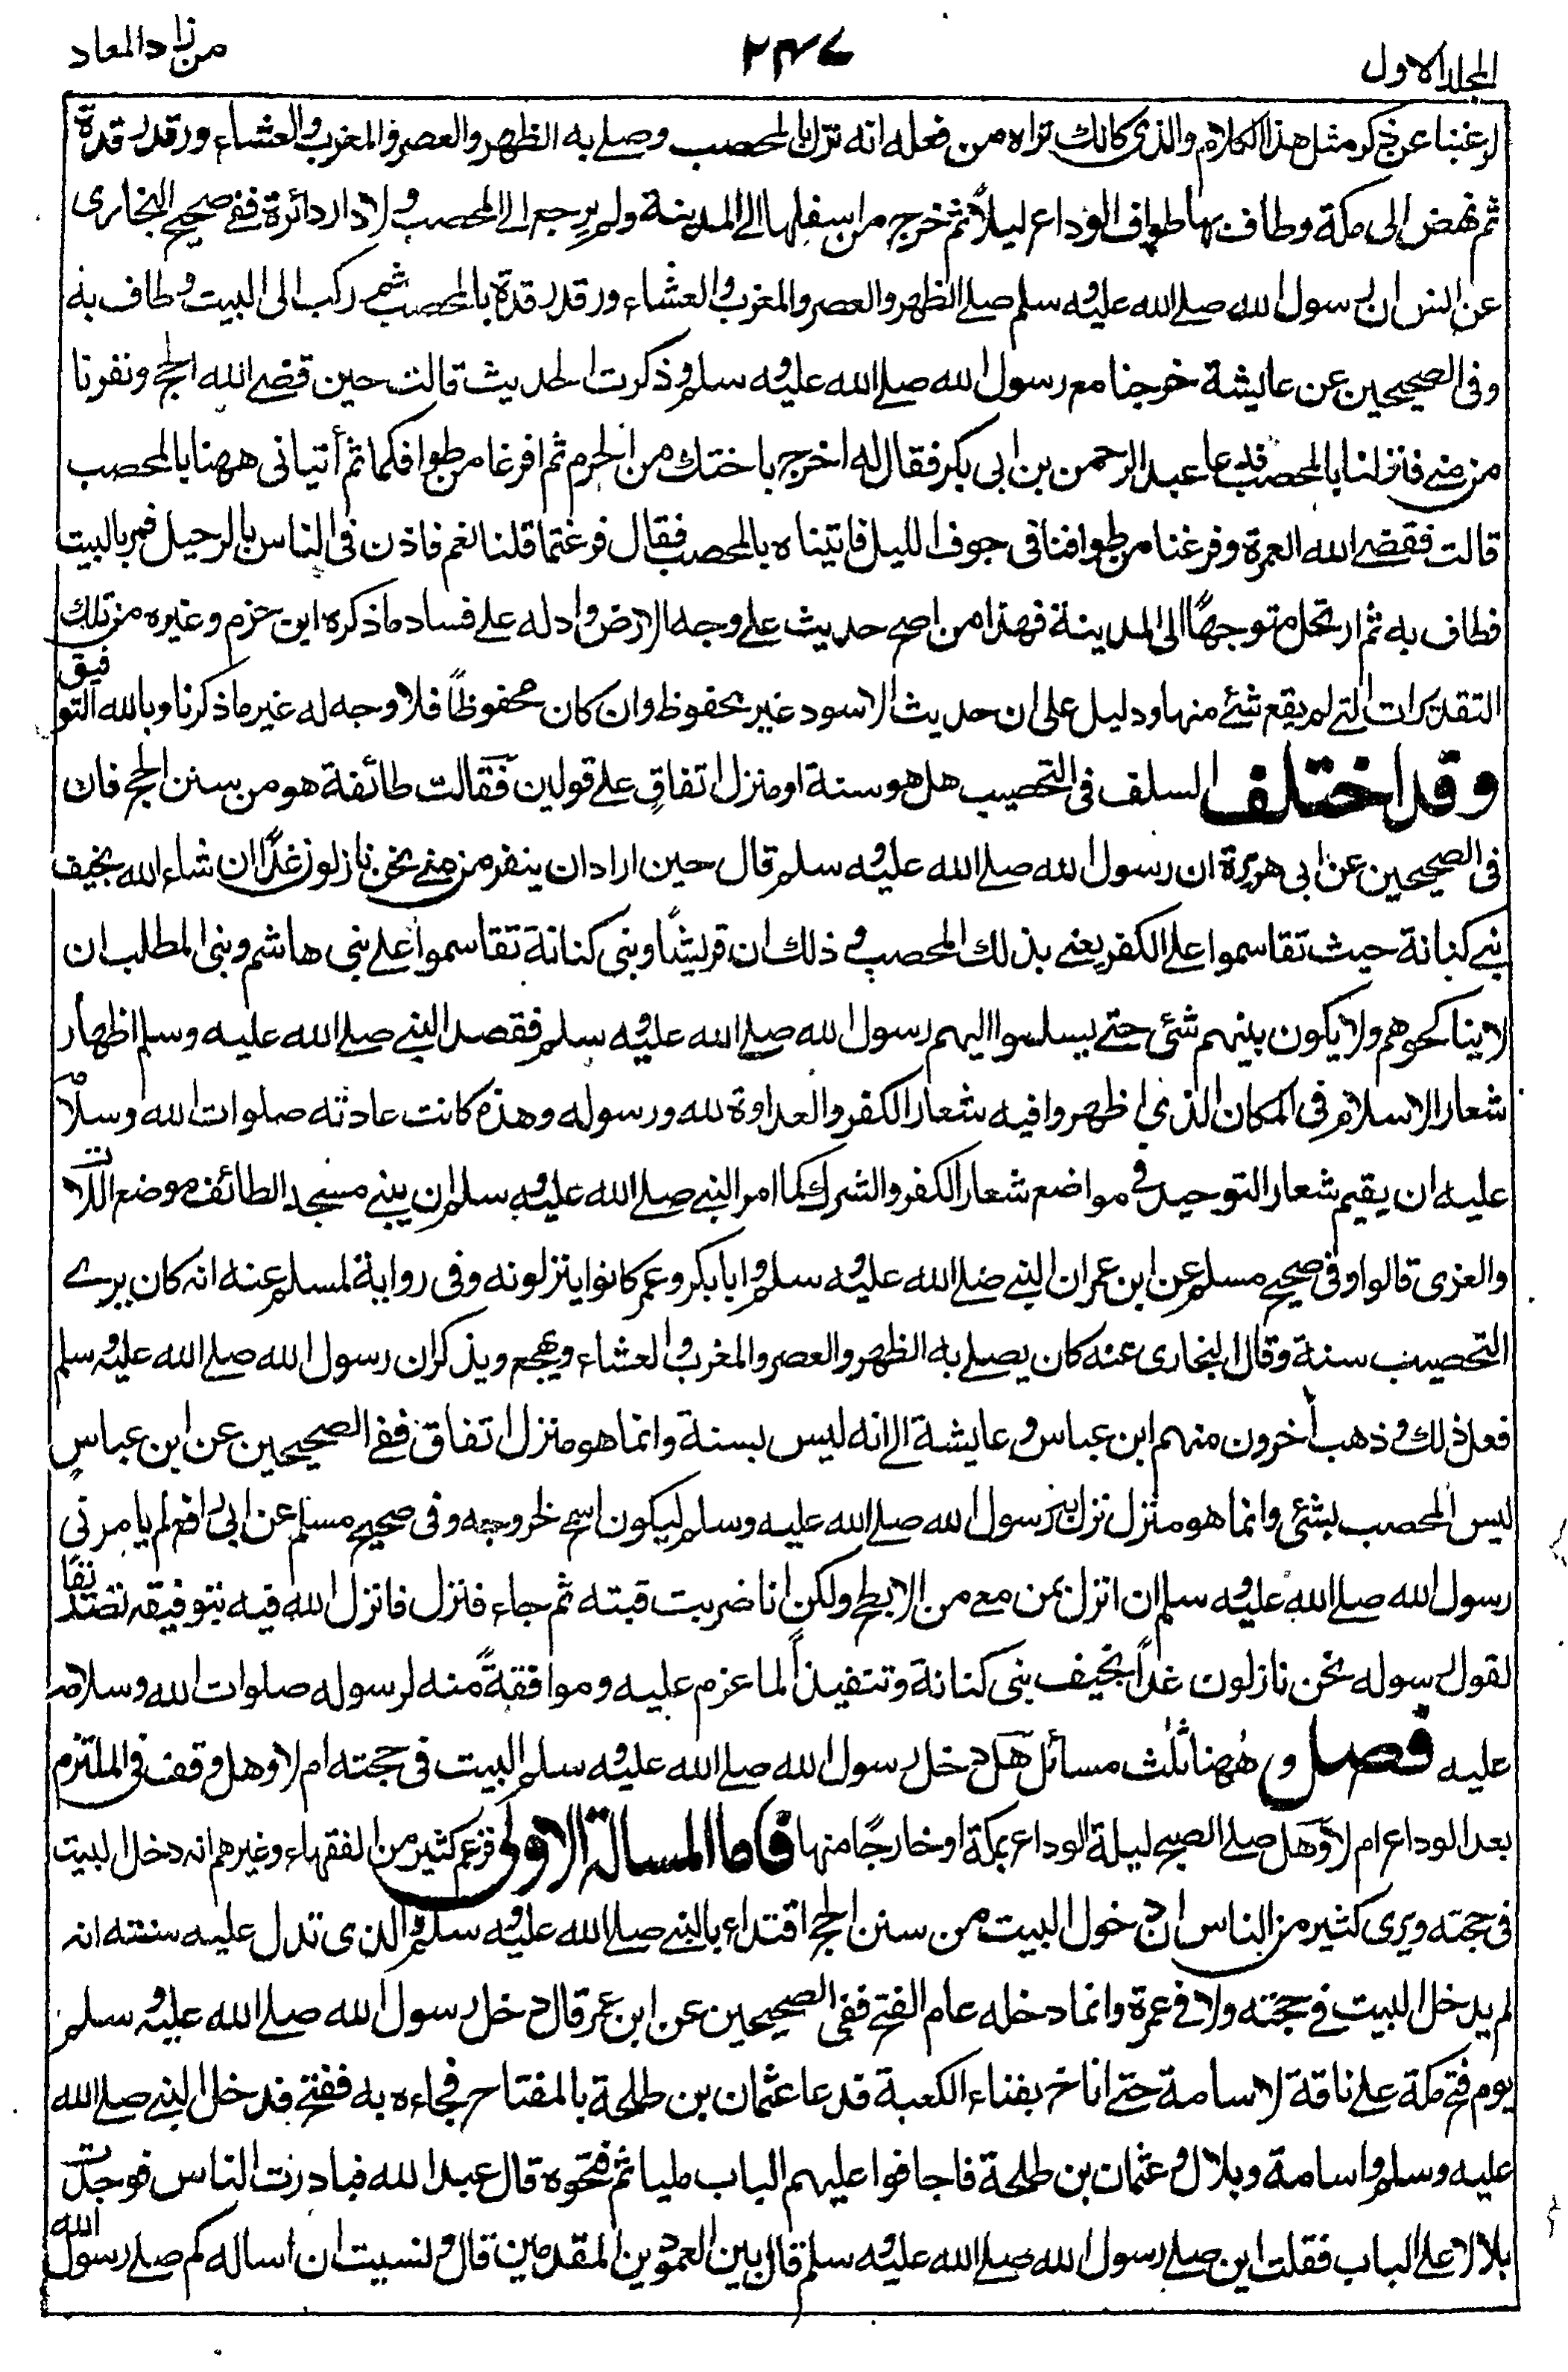 المجلد الاول
٢٣٤
من زاد المعاد
لرغبنا عن ذكر مثل هذا الكلام والذى كانك تراه من فعله انه نزل بالمحصب وصلے به الظهر والعصر والمغرب والعشاء ورقد رقدة
ثم نهض الى مكة وطاف بها طواف الوداع ليلاً ثم خرج من اسفلها الے المدينة ولم يرجع الے المحصب ولا دار دائرة ففے صحيح البخارى
عن انس ان رسول الله صلے الله عليه وسلم صلے الظهر والعصر والمغرب والعشاء ورقد رقدة بالمحصب ثم ركب الى البيت وطاف به
وفى الصحيحين عن عايشة خرجنا مع رسول الله صلے الله عليه وسلم وذكرت الحديث قالت حين قضے الله الحج ونفرنا
من منے فانزلنا بالمحصب فدعا عبد الرحمن بن ابى بكر فقال له اخرج باختك من الحرم ثم افرغا من طوافكما ثم أتيانى ههنا بالمحصب
قالت فقضے الله العمرة وفرغنا من طوافنا فى جوف الليل فاتيناه بالمحصب فقال فرغتما قلنا نعم فاذن فى الناس بالرحيل فمر بالبيت
فطاف به ثم ارتحل متوجهًا الى المدينة فهذا من اصح حديث علے وجه الارض وادله علے فساد ما ذكره ابن حزم وغيره من تلك
التقديرات التے لم يقع شئے منها ودليل على ان حديث الاسود غير محفوظ وان كان محفوظاً فلا وجه له غير ما ذكرنا وبالله التوفيق
وقد اختلف السلف فى التحصيب هل هو سنة او منزل اتفاق علے قولين فقالت طائفة هو من سنن الحج فان
فى الصحيحين عن ابى هريرة ان رسول الله صلے الله عليه وسلم قال حين اراد ان ينفر من منے نحن نازلون غدًا ان شاء الله بخيف
بنے كنانة حيث تقاسموا علے الكفر يعنے بذلك المحصب وذلك ان قريشًا وبنى كنانة تقاسموا علے بنى هاشم وبنى المطلب ان
لا يناكحوهم ولا يكون بينهم شئ حتے يسلموا اليهم رسول الله صلے الله عليه وسلم فقصد النبے صلے الله عليه وسلم اظهار
شعار الاسلام فى المكان الذى اظهروا فيه شعار الكفر والعداوة لله ورسوله وهذه كانت عادته صلوات الله وسلامه
عليه ان يقيم شعار التوحيد فى مواضع شعار الكفر والشرك كما امر النبے صلے الله عليه وسلم ان يبنے مسجد الطائف موضع اللات
والعزى قالوا وفى صحيح مسلم عن ابن عمر ان النبے صلے الله عليه وسلم وابا بكر وعمر كانوا ينزلونه وفى رواية لمسلم عنه انه كان يرے
التحصيب سنة وقال البخارى عنه كان يصلے به الظهر والعصر والمغرب والعشاء ويهجع ويذكر ان رسول الله صلے الله عليه وسلم
فعل ذلك وذهب أخرون منهم ابن عباس وعايشة الے انه ليس بسنة وانما هو منزل اتفاق ففے الصحيحين عن ابن عباس
ليس المحصب بشئ وانما هو منزل نزله رسول الله صلے الله عليه وسلم ليكون اسمح لخروجه وفى صحيح مسلم عن ابى رافع لم يامرنى
رسول الله صلے الله عليه وسلم ان انزل بمن معے من الابطح ولكن انا ضربت قبته ثم جاء فنزل فانزل الله فيه بتوفيقه تصديقًا
لقول رسوله نحن نازلون غداً بخيف بنى كنانة وتنفيذاً لما عزم عليه وموافقةً منه لرسوله صلوات الله وسلامه
عليه فصل وههنا ثلٰث مسائل هل دخل رسول الله صلے الله عليه وسلم البيت فى حجته ام لا وهل وقف فى الملتزم
بعد الوداع ام لا وهل صلے الصبح ليلة الوداع بمكة او خارجًا منها فاما المسالة الاولى فزعم كثير من الفقهاء وغيرهم انه دخل البيت
فى حجته ويرى كثير من الناس ان دخول البيت من سنن الحج اقتداء بالنبے صلے الله عليه وسلم والذى تدل عليه سنته انه
لم يدخل البيت فے حجته ولا فے عمرة وانما دخله عام الفتح ففى الصحيحين عن ابن عمر قال دخل رسول الله صلے الله عليه وسلم
يوم فتح مكة علے ناقة لاسامة حتے اناخ بفناء الكعبة فدعا عثمان بن طلحة بالمفتاح فجاءه به ففتح فدخل النبے صلے الله
عليه وسلم واسامة وبلال وعثمان بن طلحة فاجافوا عليهم الباب مليا ثم فتحوه قال عبد الله فبادرت الناس فوجدت
بلالا علے الباب فقلت اين صلے رسول الله صلے الله عليه وسلم قال بين العمودين المقدمين قال ونسيت ان اساله كم صلے رسول الله